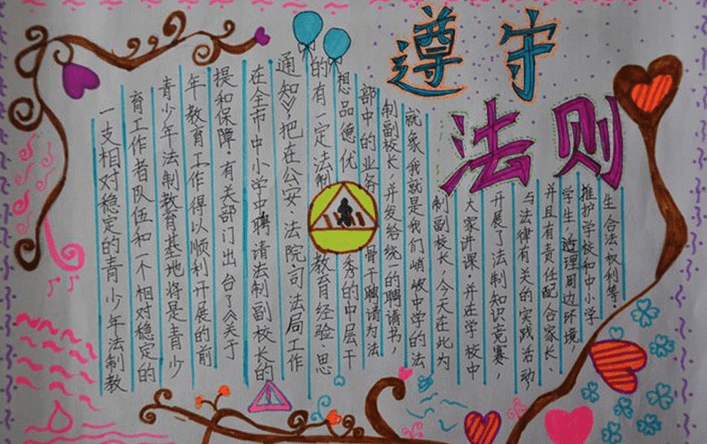 遵守
法则
一支相对稳定的青少年法制教
育工作者队伍和一个相对稳定的
青少年法制教育基地将是青少
年教育工作得以顺利开展的前
提和保障,有关部门出台了《关于
在全市中小学中聘请法制副校长的
通知》,把在公安、法院司法局工作
的有一定法制教育经验、思
想品德优秀的中层干
部中的业务骨干聘请为法
制副校长,并发给统一的聘请书,
就象我就是我们峭岐中学的法
制副校长,今天在此为
大家讲课,并在学校中
开展了法制知识竞赛,
与法律有关的实践活动
并且有责任配合家长、
学生,治理周边环境,
推护学校和中小学
生合法权利等